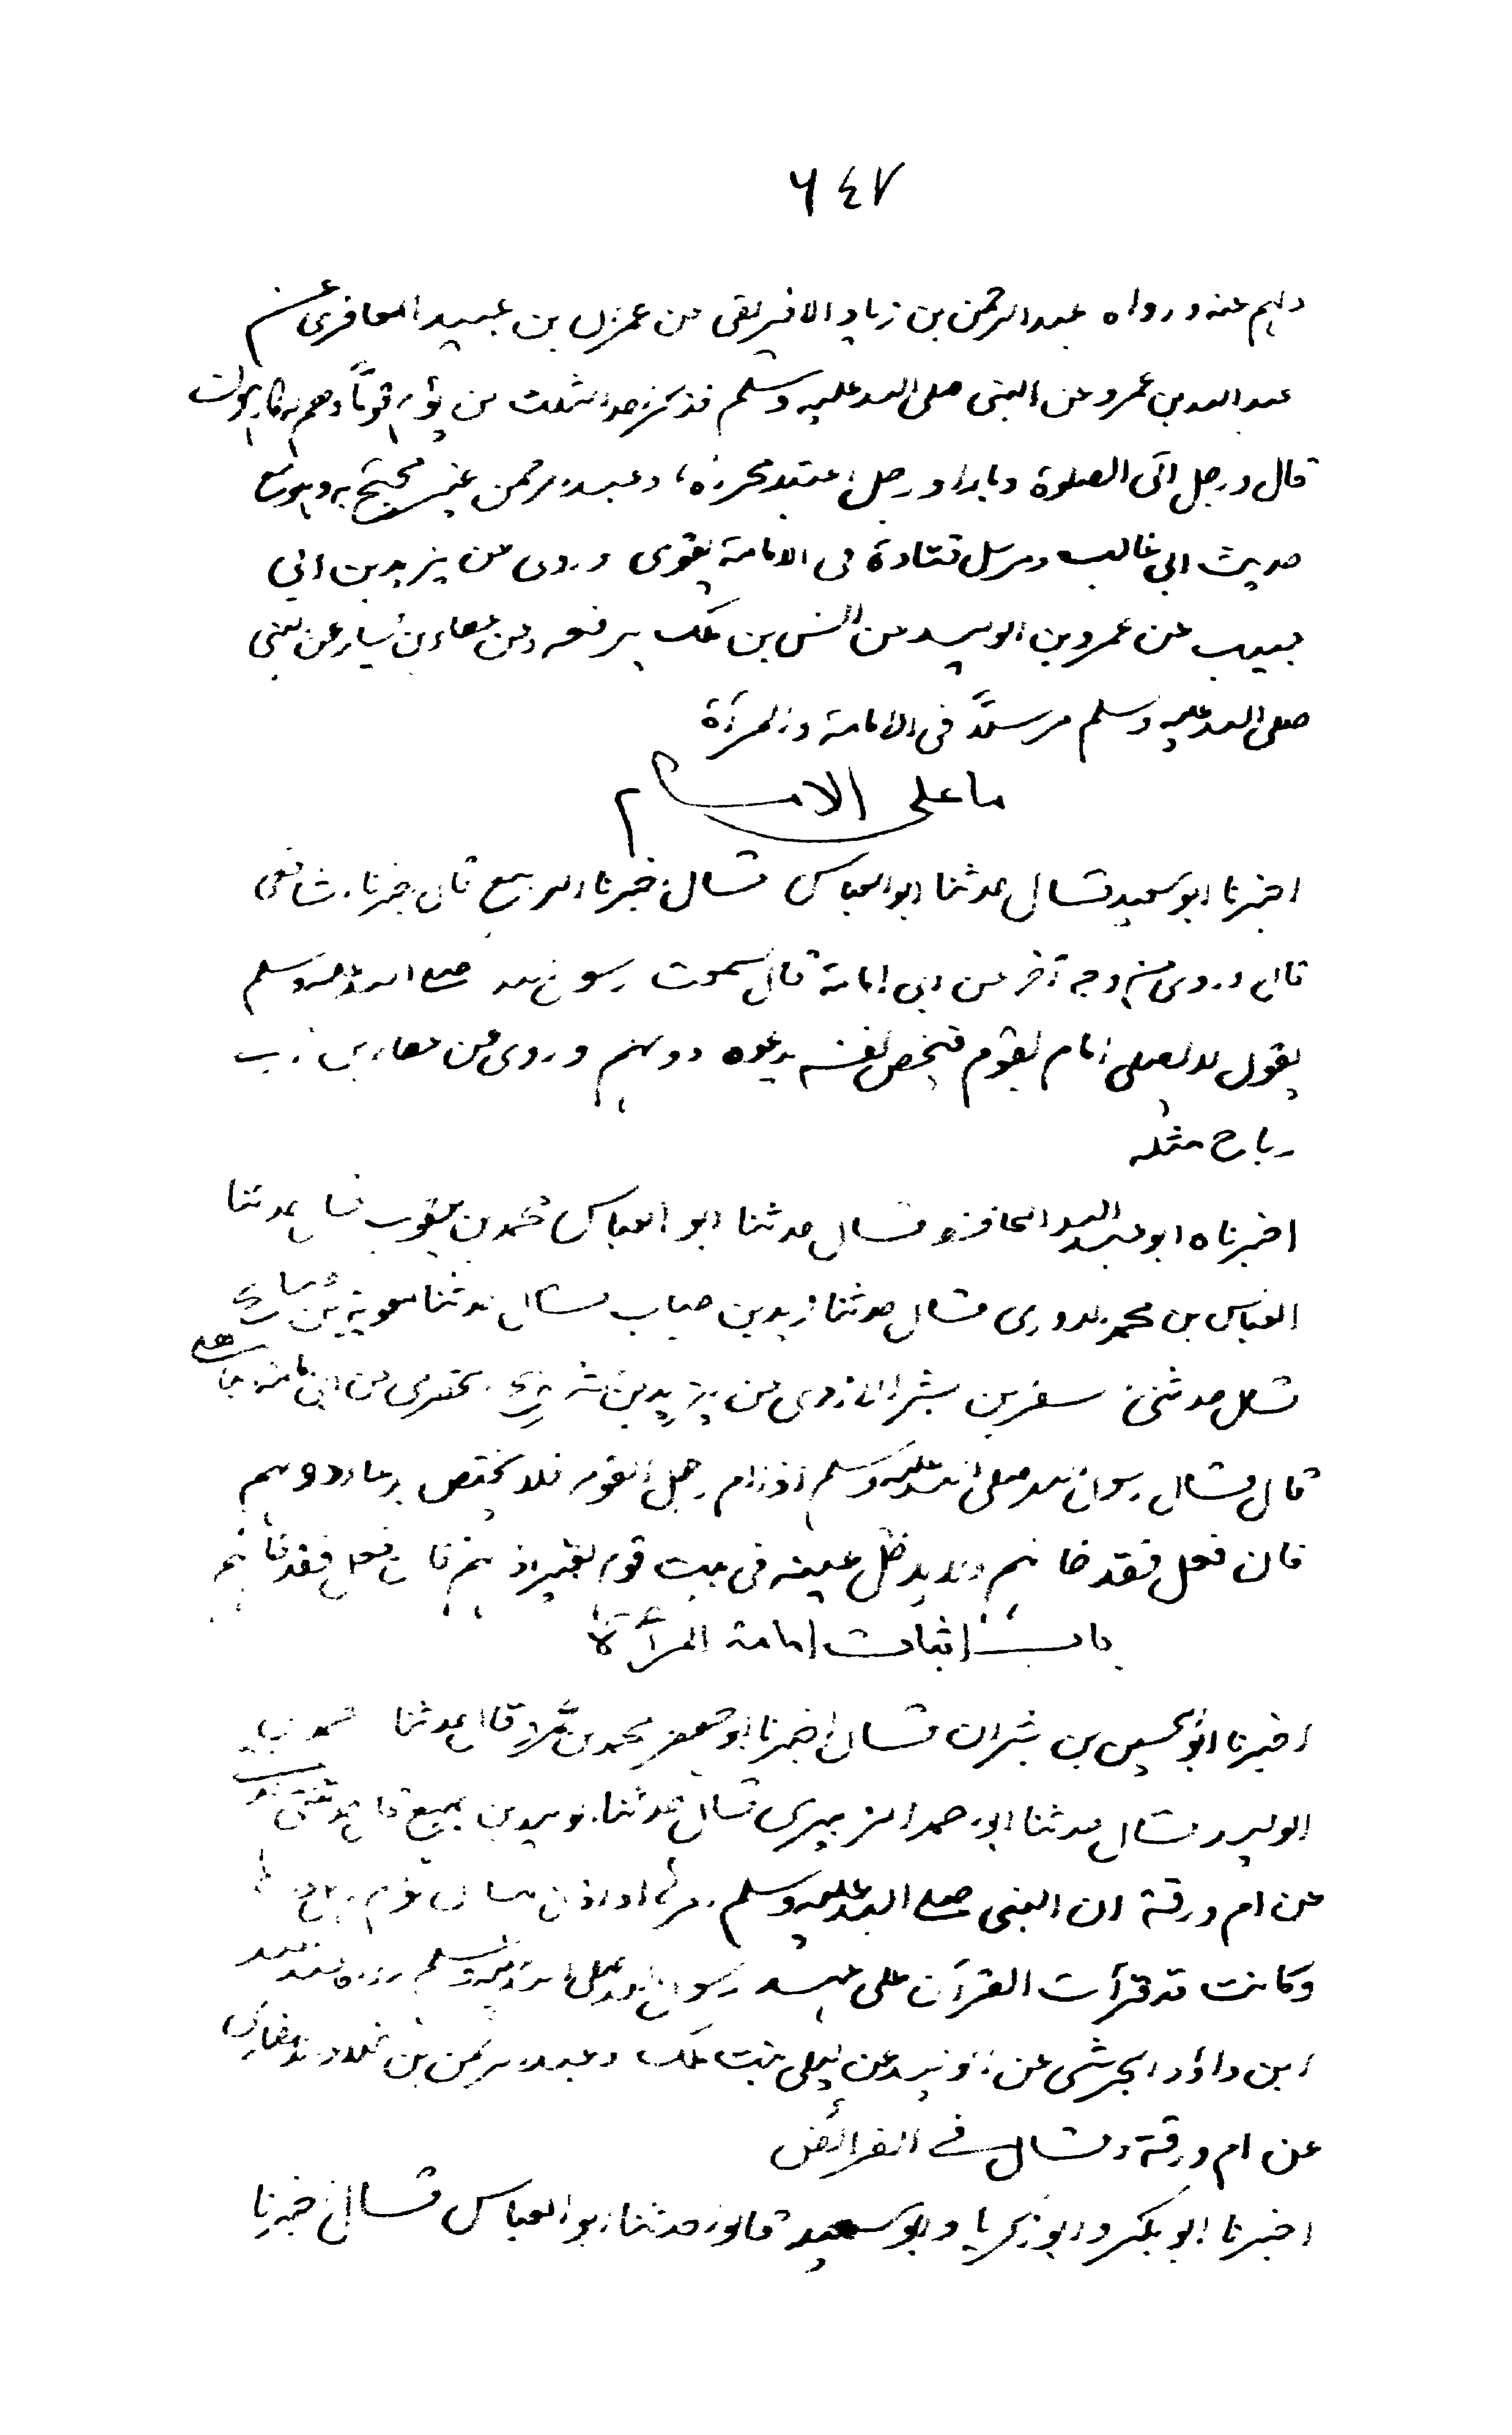 ٦٤٧
عنه ورواه عبد الرحمن بن زياد الافريقى عن عمران بن عبيد المعافرى عن
عبد الله بن عمرو عن النبى صلى الله عليه وسلم فذكر هذا الثلث من يؤم قوما وهم له كارهون
قال ورجل اتى الصلوة دبارا ورجل اعتبد محرره وعبد الرحمن غير محتج به وهو مع
حديث ابى غالب ومرسل قتادة فى الامامة يقوى وروى عن يزيد بن ابى
حبيب عن عمرو بن الوليد عن انس بن ملك يرفعه وعن عطاء بن يسار عن النبى
صلى الله عليه وسلم مرسلاً فى الامامة والمرأة
ما على الامام
اخبرنا ابو سعيد قال حدثنا ابو العباس قال اخبرنا الربيع قال اخبرنا الشافعى
قال وروى من وجه آخر عن ابى امامة قال سمعت رسول الله صلى الله عليه وسلم
يقول لا يصلى امام بقوم فيخص نفسه بدعوة دونهم وروى عن عطاء بن ابى
رباح مثله
اخبرناه ابو عبد الله الحافظ قال حدثنا ابو العباس محمد بن يعقوب قال حدثنا
العباس بن محمد الدورى قال حدثنا زيد بن حباب قال حدثنا معوية بن صالح
قال حدثنى سفر بن بشر الازدى عن يزيد بن شريح الحضرمى عن ابى امامة الباهلى
قال قال رسول الله صلى الله عليه وسلم اذا ام رجل القوم فلا يختص بدعاء دونهم
فان فعل فقد خانهم ولا يدخل عينه فى بيت قوم بغير اذنهم فان فعل فقد خانهم
باب اثبات امامة المرأة
اخبرنا ابو الحسين بن بشران قال اخبرنا ابو جعفر محمد بن عمرو قال حدثنا محمد بن
الوليد قال حدثنا ابو احمد الزبيرى قال حدثنا الوليد بن جميع قال حدثتنى
عن ام ورقة ان النبى صلى الله عليه وسلم
وكانت قد قرأت القرآن على عهد رسول الله صلى الله عليه وسلم رواه عبد الله
ابن داؤد الخريبى عن الوليد عن ليلى بنت ملك وعبد الرحمن بن خلاد الانصارى
عن ام ورقة وقال فى الفرائض
اخبرنا ابو بكر وابو زكريا وابو سعيد قالوا حدثنا ابو العباس قال اخبرنا